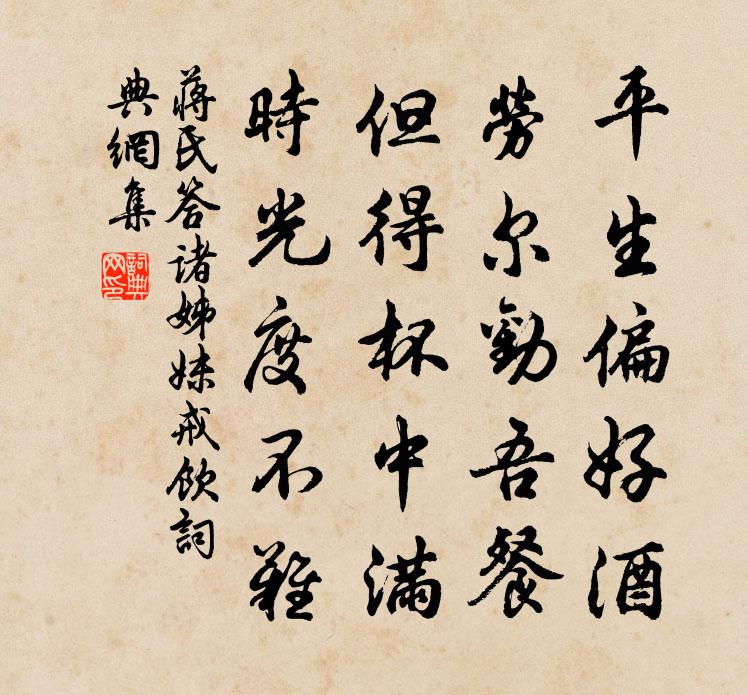 平生偏好酒
勞尔勸吾餐
但得杯中滿
時光度不難
蔣氏答诸姊妹戒飲詞
典網集
詞典网印